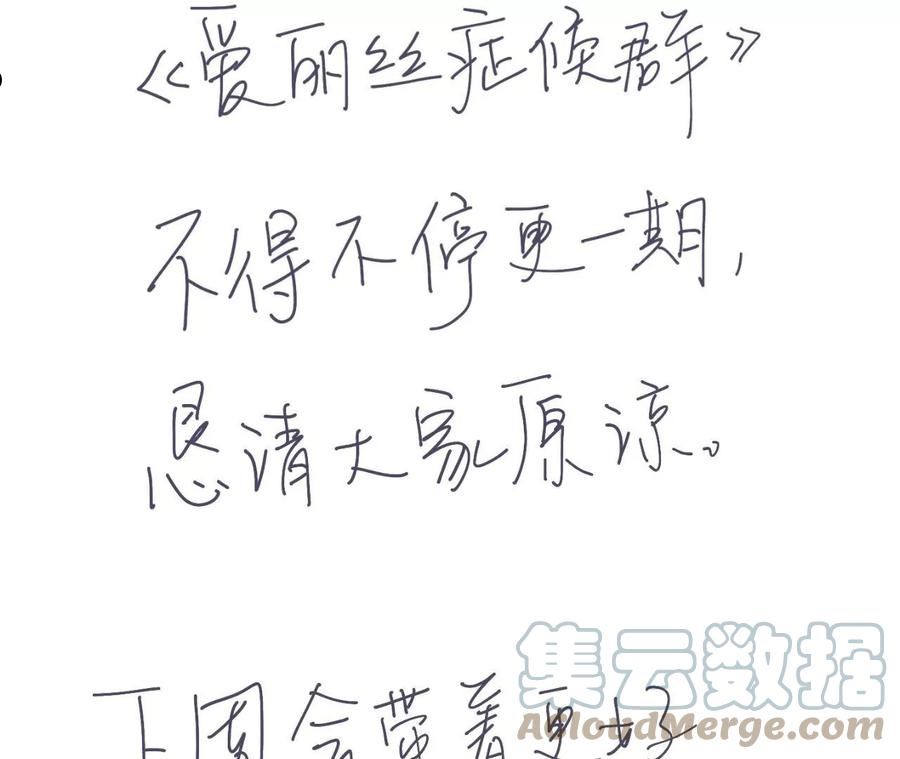 《爱丽丝症候群》
不得不停更一期，
恳请大家原谅。
集云数据
AlloudMerge.com
下周会带着更好